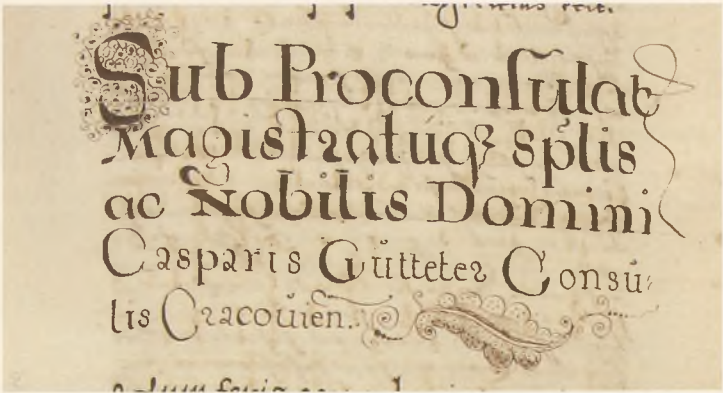 Sub Proconſulat
Magistratuq₃ Splis
ac Nobilis Domini
Casparis Gůtteter Conſu⸗
lis Cracoůień.